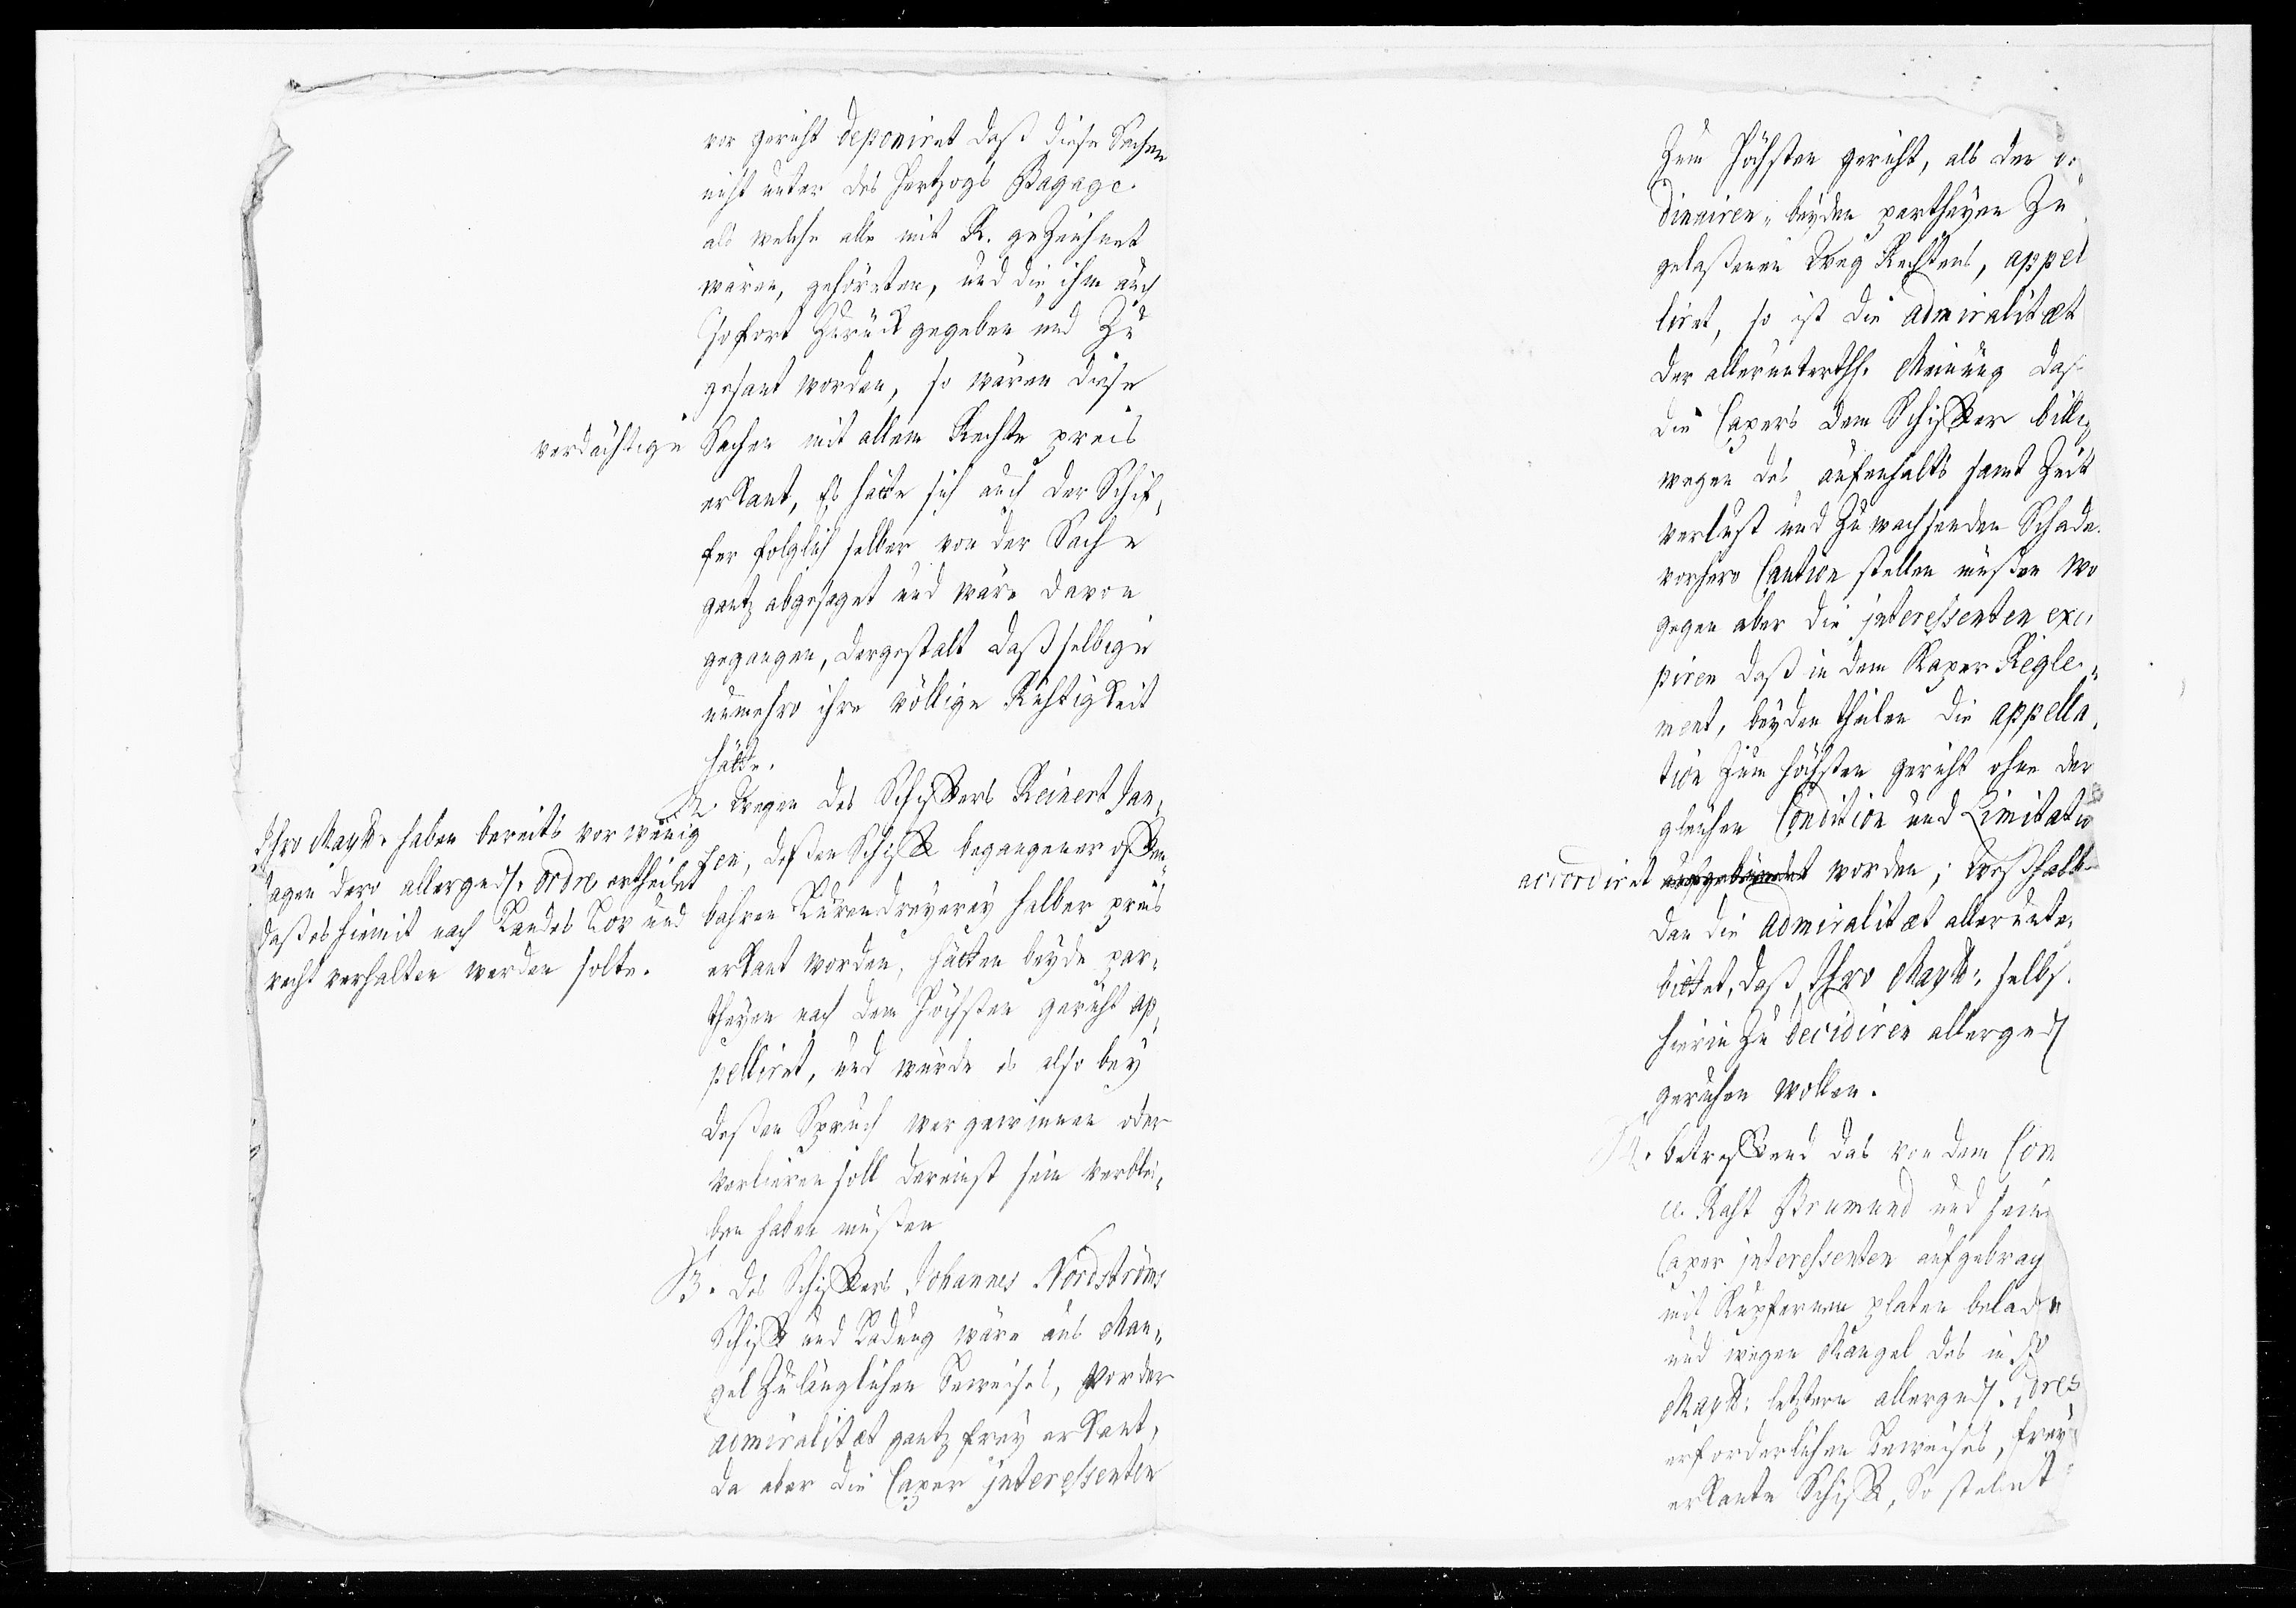 vor gericht deponiret daß diese Sachen
nicht unter des Hertzogs Bagage
als welche alle mit R. gezeichnet
wären, gehöreten, und die ihm auch
sofort zurück gegeben und zu
gesant worden, so wären diese
verdächtige Sachen mit allem Rechte preis
erkant, Es hätte sich auch der Schif-
fer folglich selber von der Sache
gantz abgesaget und wäre davon
gegangen, dergestalt daß selbige
nunmehro ihre völlige Richtigkeit
hätte.
2. Wegen des Schiffers Reinert Jan-
sen, deßen Schiff begangener offen-
bahren Lurrendreyerey halber preis
erkant worden, hätten beyde par-
theyen nach dem Höchsten gericht ap-
pelliret, und würde es also bey
deßen Spruch wer gewinnen oder
verlieren soll dereinst sein verblei-
ben haben müßen
Ihro Maytt. haben bereits vor wenig
tagen dero allergndst. ordre ertheilet
daß es hiemit nach Landes Lov und
recht verhalten werden solte.
3. Des Schiffers Johannes Nordströms
Schiff und Ladung wäre aus Man-
gel zulänglichen Beweises, vor der
admiralitæt gantz frey erkant,
da aber die Caper interessenten
zum Höchsten gericht, als den or-
dinairen, beyden partheyen zu
gelaßenen Weg Rechtens, appel
liret, so ist die admiralitæt
der allerunterth. Meinung daß
die Capers dem Schiffer billig
wegen des aufenhalts samt Zeit
verlust und zuwachsenden Schade
vorhero Caution stellen müßen wo
gegen aber die interessenten exci
piren daß in dem Kaper Regle-
ment, beyden theilen die appella-
tion zum höchsten gericht ohne der
gleichen Condition und Limitatio
accordiret worden; Weßhalb
dan die admiralitæt allerunte
bittet, daß Ihro Maytt. selbs
hierin zu decidiren allergndst
geruhen wollen.
4. betreffend das von dem Com
Raht Brumund und seine
Caper interessenten aufgebrag
mit Kupfernen platen belade
und wegen Mangel des in Ih
Maytt. letztern allergndst.
erforderlichen Beweises, frey
erkante Schiff, So stehet